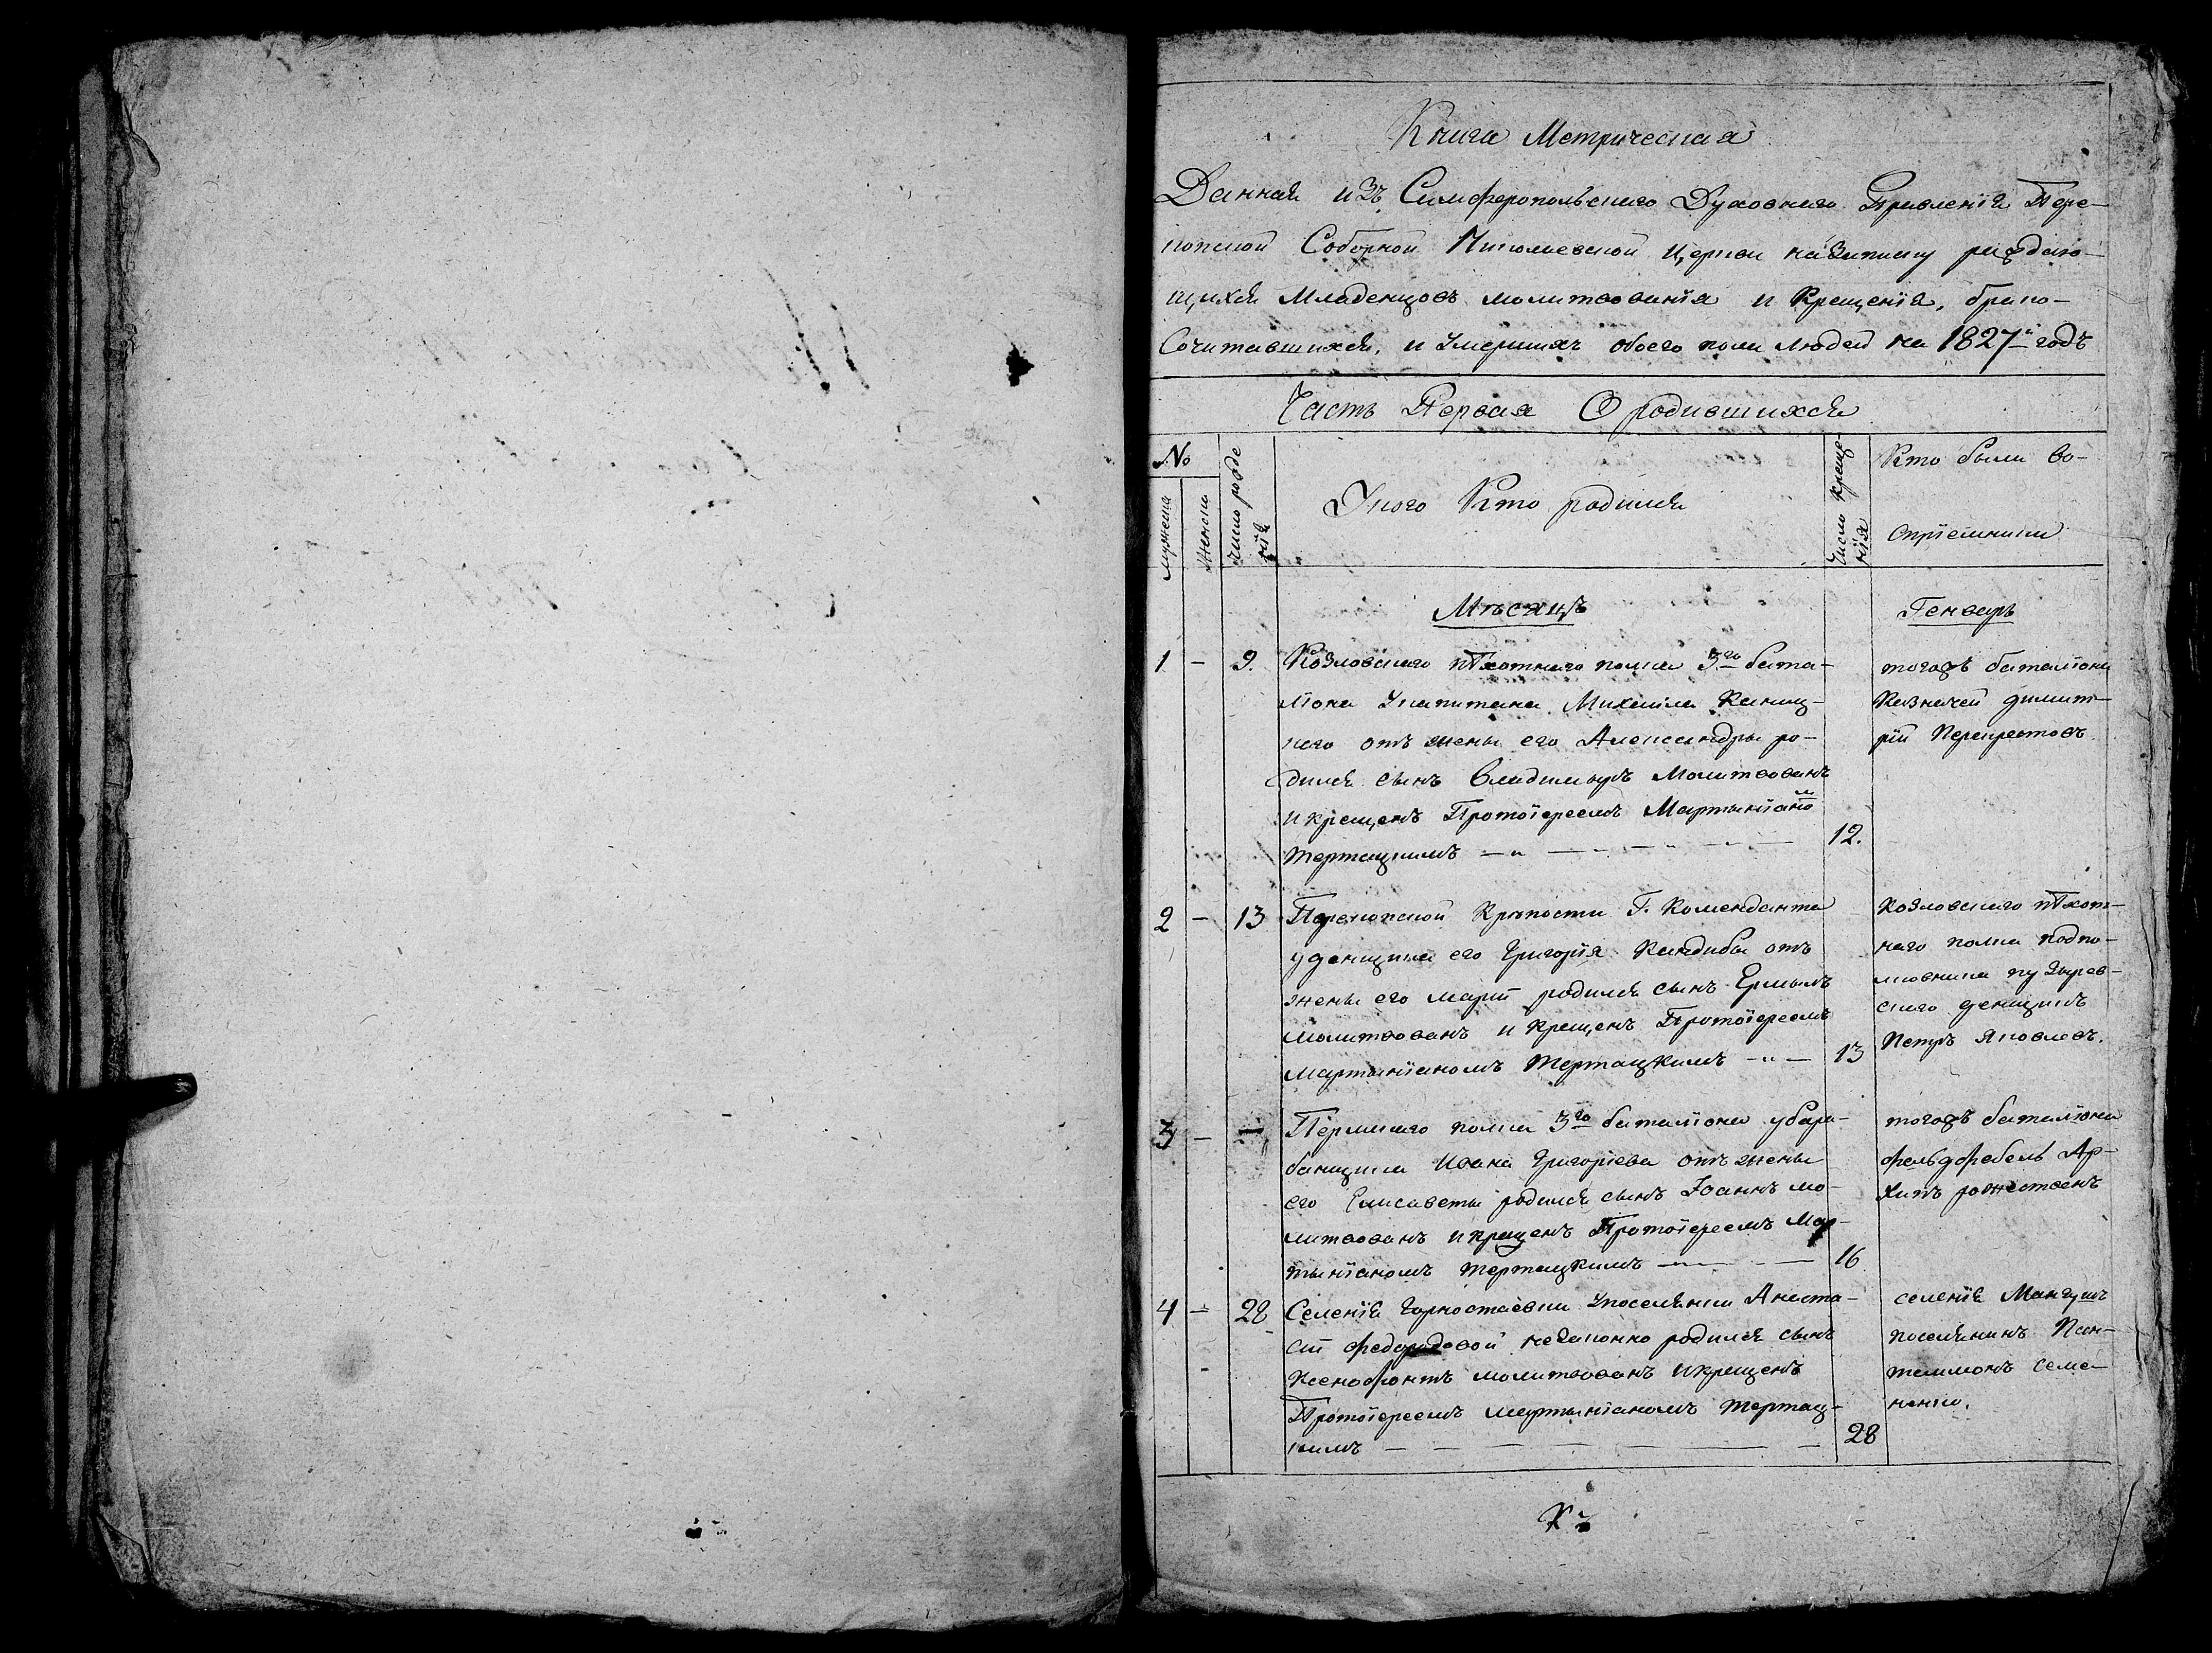 Книга Метрическая
Данная изъ Симферопольскаго Духовнаго Правленія Пере-
копской Соборной Николаевской Церкви на записку раждаю-
щихся Младенцовъ молитвованія и Крещенія, брако-
Сочитавшихся, и Умершихъ обоего пола людей на 1827й годъ
Часть Первая О родившихся
№
мужеска
женска
число рожде
нія
Укого Кто родился
Число креще-
нія
Кто были во-
спріемники
Мѣсяцъ
Генварь
1 - 9. Козловскаго пѣхотнаго полка 3го бата-
ліона Укапитана Михаила
отъ жены его Александры ро-
дился сынъ Владимиръ Молитвованъ
и крещенъ Протоіереемъ Мартиніаномъ
Тертацкимъ 12.
тогожъ баталіона
Казначей димит-
рій Перекрестовъ.
2 - 13 Перекопской Крѣпости Г. Коменданта
уденщика его Григорія Кандибы отъ
жены его Маріи родился сынъ
молитвованъ и крещенъ Протоіереемъ
Мартиніаномъ Тертацкимъ 13
Козловскаго пѣхот-
наго полка подпо-
лковника
скаго денщикъ
Петръ Яковлевъ.
3 - Пермскаго полка 3го баталіона убара-
банщика Ивана Григорьева отъ жены
его Елисаветы родился сынъ Іоаннъ мо-
литвованъ и крещенъ Протоіереемъ Мар-
тиніаномъ Тертацкимъ 16
тогожъ баталіона
фельдфебель Ар-
хипъ
4 - 28 Селенія Горностаевки Упоселянки Анаста-
сіи Федоровой незаконно родился сынъ
Ксенофонтъ молитвованъ и крещенъ
Протоіереемъ Мартиніаномъ Тертац-
кимъ 28
селенія Мангушъ
поселянинъ Пан-
телимонъ Семе-
ненко.